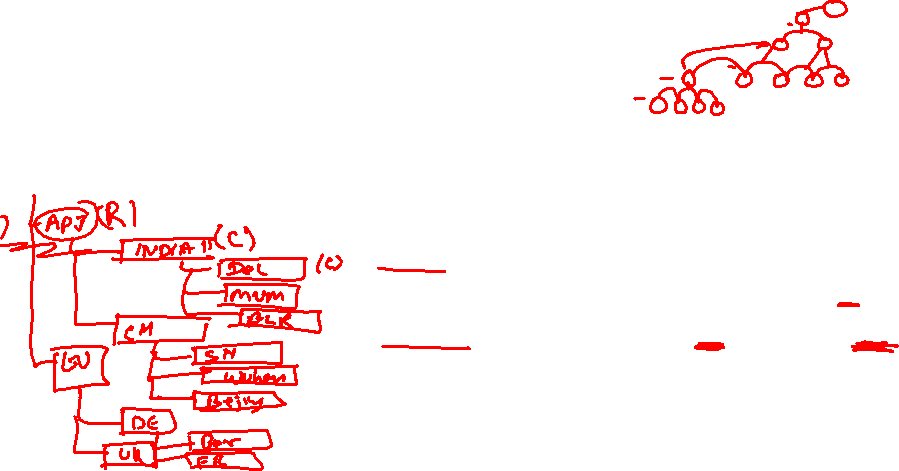 APJ (R)
INDIA (C)
DEL (C)
MUM
BLR
CH
SH
Wuhan
Beijing
EU
DE
UK